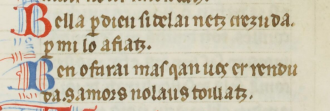 Bella p dieu si de lai netz crezuda.
p mi lo afiatz.
Ben ofirai mas qan uos er rendu
da samors no laus tolliatz.